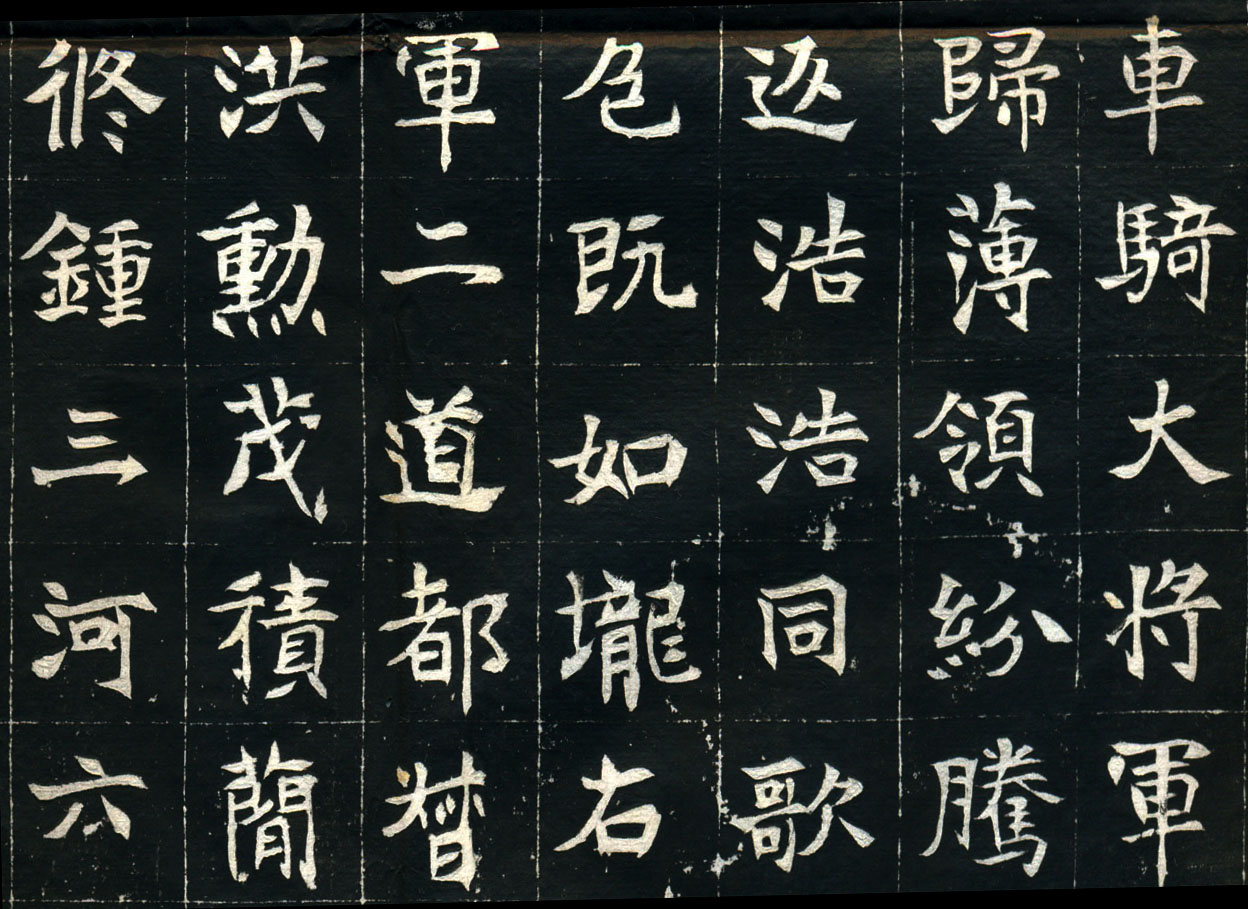 車騎大将軍
歸薄領紛騰
返浩浩同歌
既如壠右
軍二道都督
洪勳茂積蕳
修鍾三河六